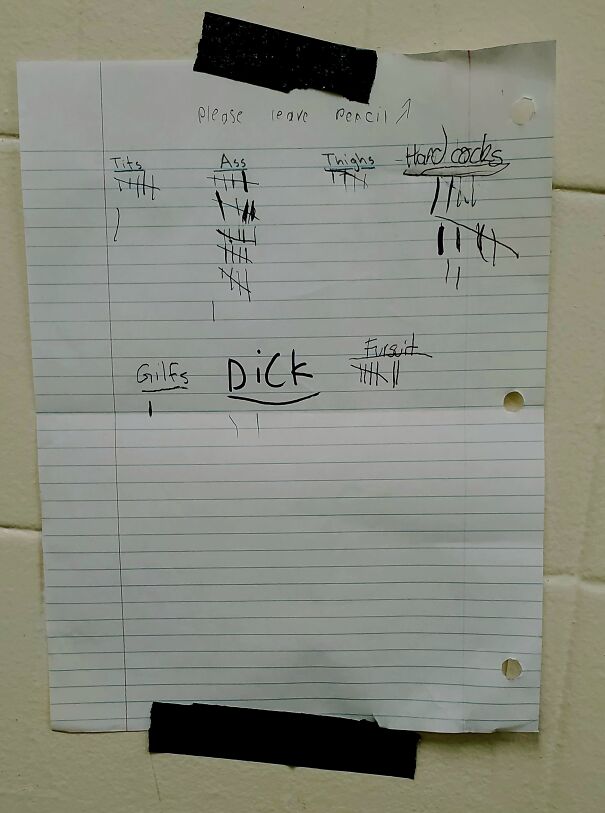 please leave pencil ↗
Tits Ass Thighs Hard cocks
Gilfs DiCk Fursuit